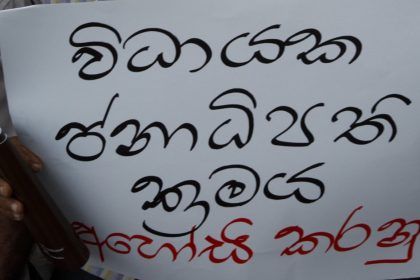 විධායක
ජනාධිපති
ක්‍රමය
අහෝසි කරනු